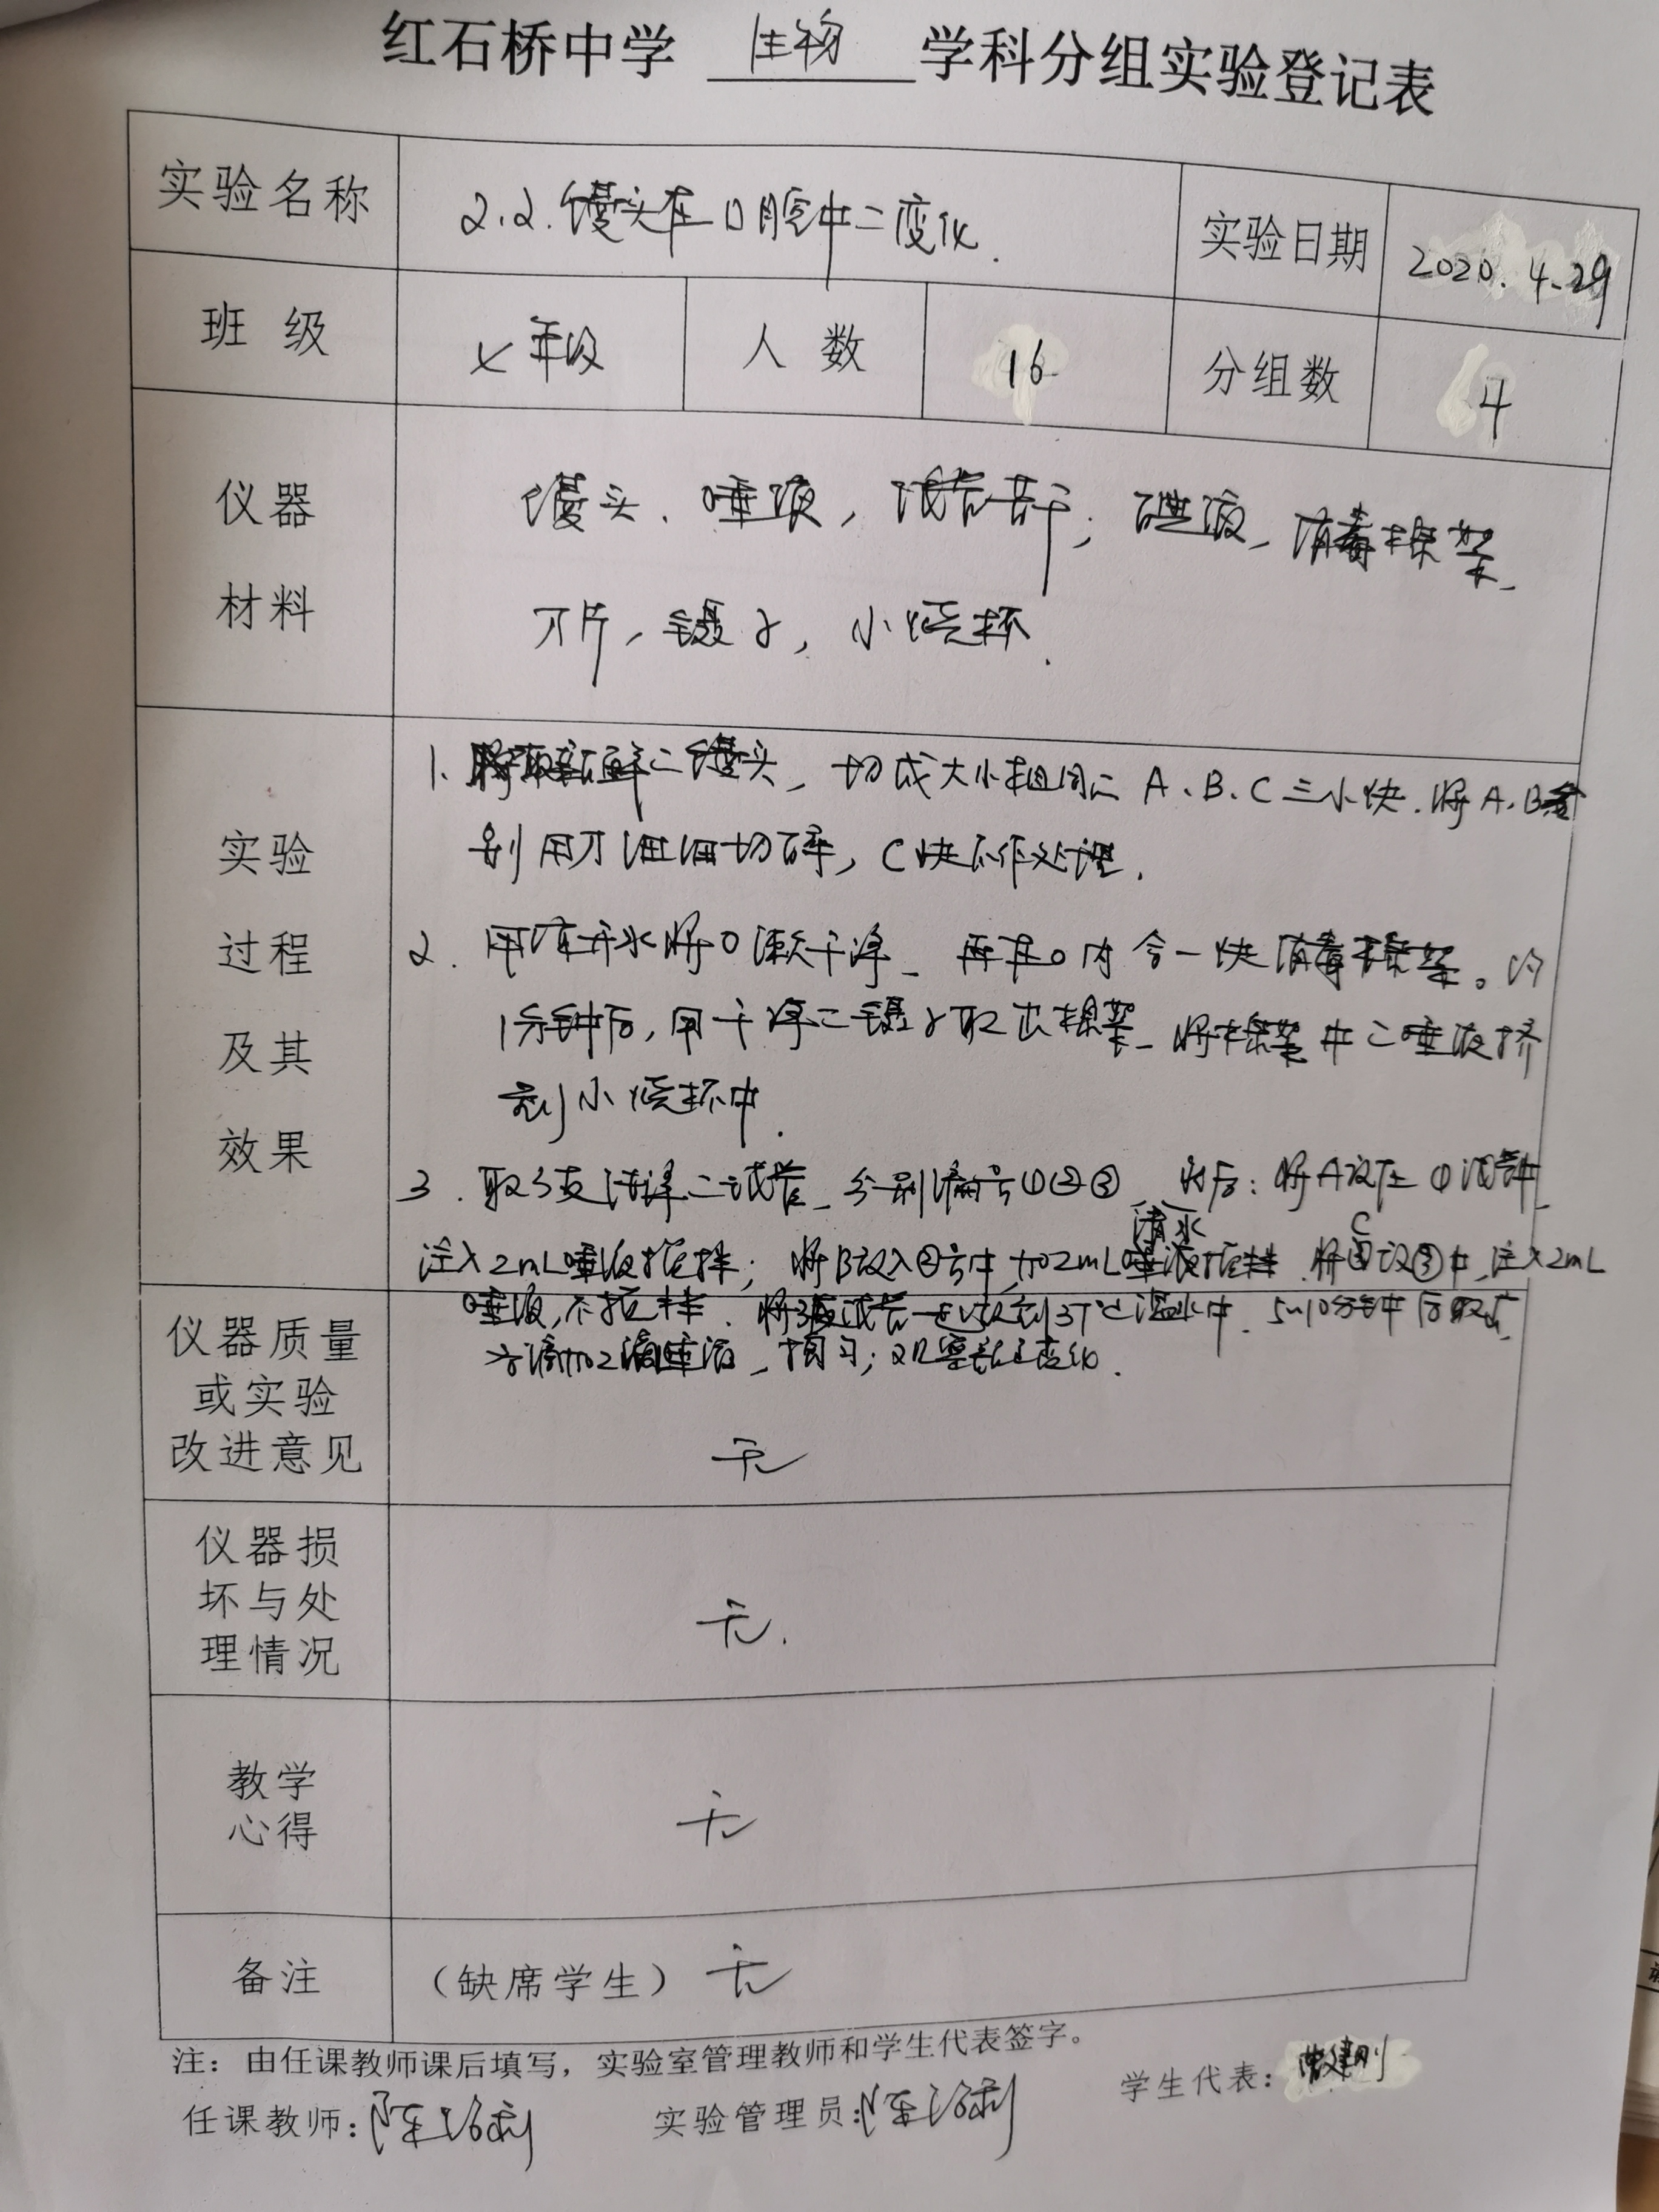 红石桥中学 生物 学科分组实验登记表
实验名称 2.2.馒头在口腔中二变化. 实验日期 2020.4.29
班级 七年级 人数 16 分组数 4
仪器 馒头、唾液,试管若干,碘液、消毒棉絮、
材料 刀片,镊子,小烧杯.
1、取新鲜二馒头,切成大小相同二A、B、C三小块.将A、B分
实验 别用刀细细切碎,C块不作处理.
2. 用凉开水将口漱干净、再在口内含一块消毒棉絮。约
过程
1分钟后,用干净二镊子取出棉絮、将棉絮中二唾液挤
及其
到小烧杯中.
效果
3.取3支洁净二试管、分别编号①②③、然后:将A放在①试管中、
清水 C
注入2mL唾液搅拌;将B放入②号中,加2mL搅拌.将放③中,注入2mL
唾液,不搅拌.将3支试管一起放到37℃温水中.5~10分钟后取出,
各滴加2滴,摇匀;观察颜色变化.
仪器质量
或实验
改进意见 无
仪器损
坏与处 无.
理情况
教学
心得 无
备注 (缺席学生) 无
注:由任课教师课后填写,实验室管理教师和学生代表签字。
任课教师: 实验管理员: 学生代表: